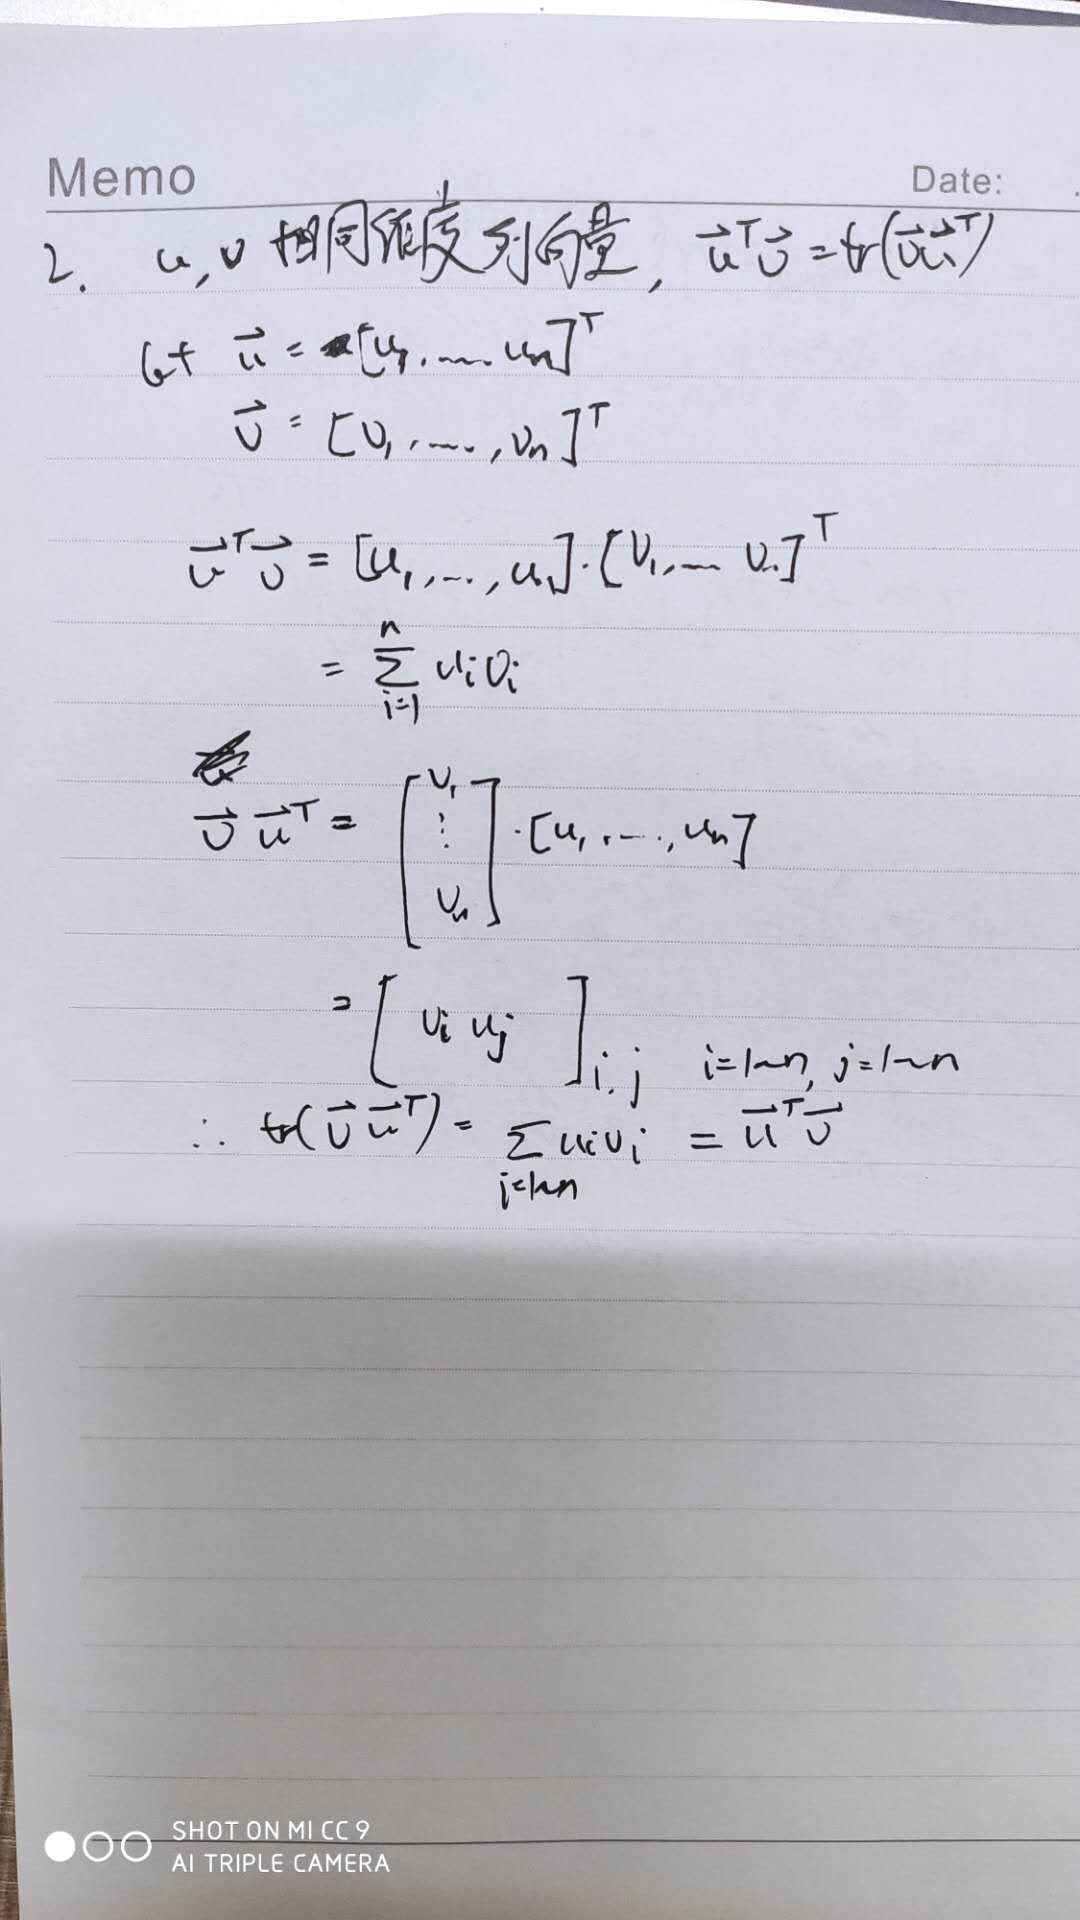 Memo
Date:
2. u, v 相同维度列向量, u⃗ᵀv⃗ = tr(v⃗u⃗ᵀ)
let u⃗ = [u₁, ... uₙ]ᵀ
v⃗ = [v₁, ..., vₙ]ᵀ
u⃗ᵀv⃗ = [u₁, ..., uₙ]·[v₁, ... vₙ]ᵀ
= ∑ᵢ₌₁ⁿ uᵢvᵢ
v⃗ u⃗ᵀ = [v₁ ⋮ vₙ]·[u₁, ..., uₙ]
= [vᵢ uⱼ]ᵢ,ⱼ i=1~n, j=1~n
∴ tr(v⃗ u⃗ᵀ) = ∑ᵢ₌₁~ₙ uᵢvᵢ = u⃗ᵀv⃗
SHOT ON MI CC 9
AI TRIPLE CAMERA